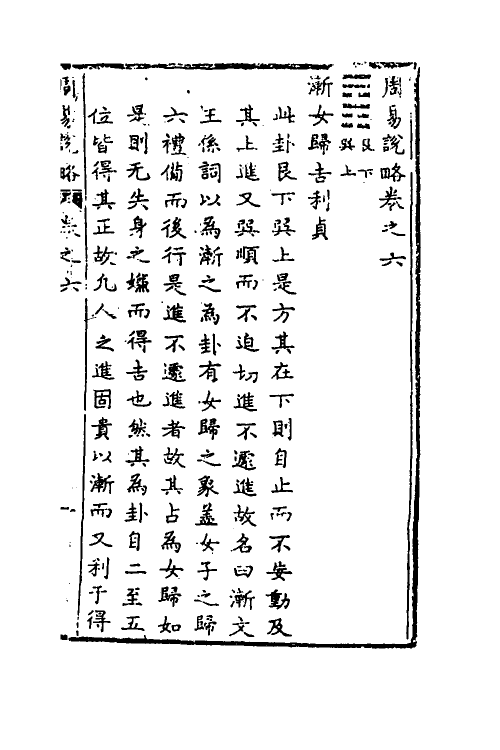 周易說略卷之六
艮下
巽上
漸女歸吉利貞
此卦艮下巽上是方其在下則自止而不妄動及
其上進又巽順而不迫切進不遽進故名曰漸文
王係詞以為漸之為卦有女歸之象葢女子之歸
六禮備而後行是進不遽進者故其占為女歸如
是則无失身之嫌而得吉也然其為卦自二至五
位皆得其正故凢人之進固貴以漸而又利于得
周易說略 卷之六 一